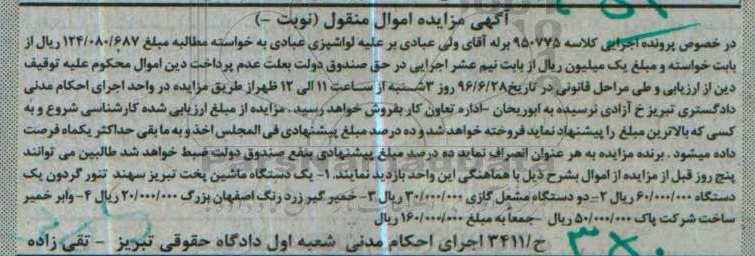 آگهی مزایده اموال منقول (نوبت -)
در خصوص پرونده اجرایی کلاسه ۹۵۰۷۷۵ برله آقای ولی عبادی بر علیه لواشپزی عبادی به خواسته مطالبه مبلغ ۱۲۴/۰۸۰/۶۸۷ ریال از
بابت خواسته و مبلغ یک میلیون ریال از بابت نیم عشر اجرایی در حق صندوق دولت بعلت عدم پرداخت دین اموال محکوم علیه توقیف
دین از ارزیابی و طی مراحل قانونی در تاریخ ۹۶/۶/۲۸ روز ۳شنبه از ساعت ۱۱ الی ۱۲ ظهراز طریق مزایده در واحد اجرای احکام مدنی
دادگستری تبریز خ آزادی نرسیده به ابوریحان -اداره تعاون کار بفروش خواهد رسید . مزایده از مبلغ ارزیابی شده کارشناسی شروع و به
کسی که بالاترین مبلغ را پیشنهاد نماید فروخته خواهد شد و ده درصد مبلغ پیشنهادی فی المجلس اخذ و به مابقی حداکثر یکماه فرصت
داده میشود . برنده مزایده به هر عنوان انصراف نماید ده درصد مبلغ پیشنهادی بنفع صندوق دولت ضبط خواهد شد طالبین می توانند
پنج روز قبل از مزایده از اموال بشرح ذیل با هماهنگی این واحد بازدید نمایند. ۱- یک دستگاه ماشین پخت تبریز سهند تنور گردون یک
دستگاه ۶۰/۰۰۰/۰۰۰ ریال ۲- دو دستگاه مشعل گازی ۳۰/۰۰۰/۰۰۰ ریال ۳- خمیر گیر زرد رنگ اصفهان بزرگ ۲۰/۰۰۰/۰۰۰ ریال ۴- وابر خمیر
ساخت شرکت پاک ۵۰/۰۰۰/۰۰۰ ریال -جمعا به مبلغ ۱۶۰/۰۰۰/۰۰۰ ریال
ح/۳۴۱۱ اجرای احکام مدنی شعبه اول دادگاه حقوقی تبریز - تقی زاده